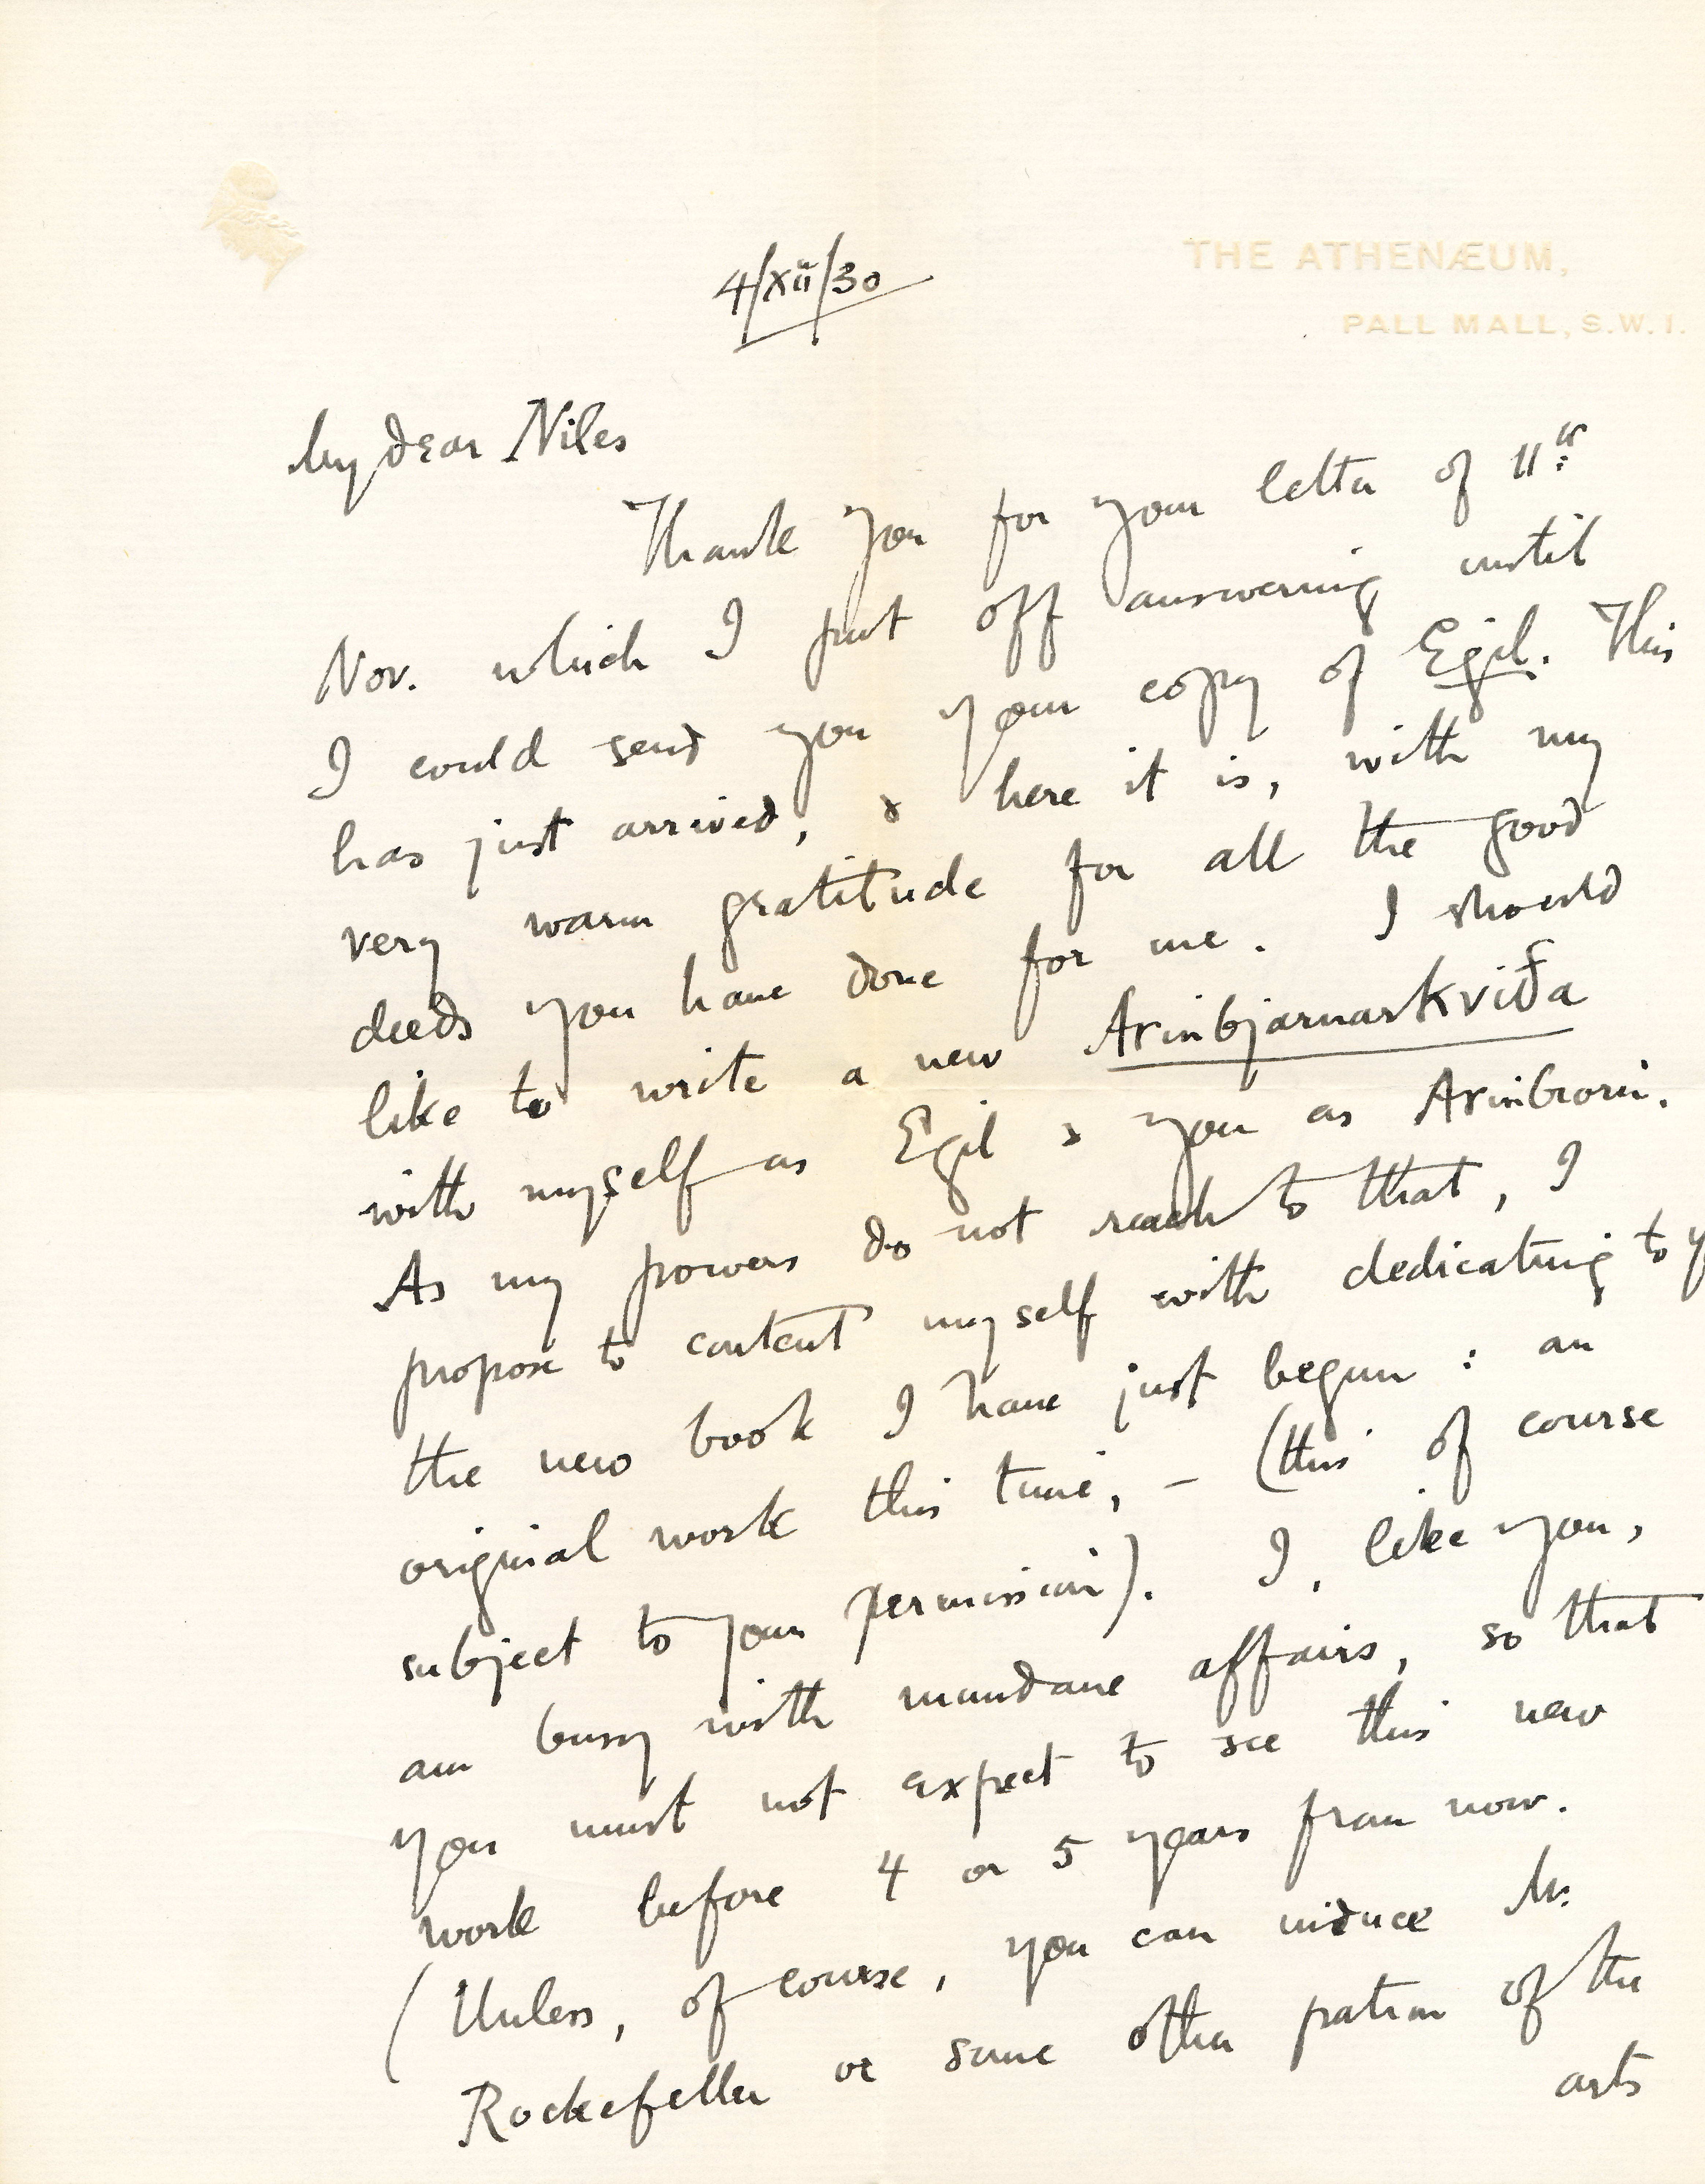 THE ATHENÆUM,
PALL MALL, S.W.1.
4/XII/30
My dear Niles
Thank you for your letter of 11th
Nov. which I put off answering until
I could send you your copy of Egil. This
has just arrived, & here it is, with my
very warm gratitude for all the good
deeds you have done for me. I should
like to write a new Arinbjarnarkviða
with myself as Egil & you as Arinbiorn.
As my powers do not reach to that, I
propose to content myself with dedicating to y
the new book I have just begun : an
original work this time, – (this of course
subject to your permission). I, like you,
am busy with mundane affairs, so that
you must not expect to see this new
work before 4 or 5 years from now.
(Unless, of course, you can induce Mr.
Rockefeller or some other patron of the
arts